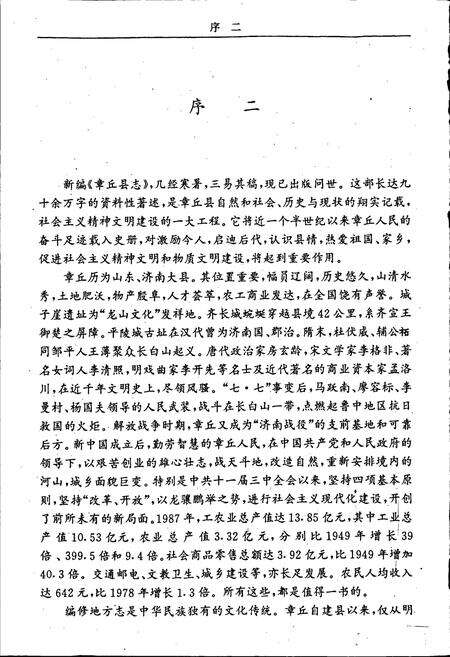 序 二
序 二
新编《章丘县志》，几经寒暑，三易其稿，现已出版问世。这部长达九
十余万字的资料性著述，是章丘县自然和社会、历史与现状的翔实记载，
社会主义精神文明建设的一大工程。它将近一个半世纪以来章丘人民的
奋斗足迹载入史册，对激励今人，启迪后代，认识县情，热爱祖国、家乡，
促进社会主义精神文明和物质文明建设，将起到重要作用。
章丘历为山东、济南大县。其位置重要，幅员辽阔，历史悠久，山清水
秀，土地肥沃，物产殷阜，人才荟萃，农工商业发达，在全国饶有声誉。城
子崖遗址为“龙山文化”发祥地。齐长城蜿蜒穿越县境42公里，系齐宣王
御楚之屏障。平陵城古址在汉代曾为济南国、郡治。隋末，杜伏威、辅公祏
同邹平人王薄聚众长白山起义。唐代政治家房玄龄，宋文学家李格非、著
名女词人李清照，明戏曲家李开先等名士及近代著名的商业资本家孟洛
川，在近千年文明史上，尽领风骚。“七·七”事变后，马跃南、廖容标、李
曼村、杨国夫领导的人民武装，战斗在长白山一带，点燃起鲁中地区抗日
救国的火炬。解放战争时期，章丘又成为“济南战役”的支前基地和可靠
后方。新中国成立后，勤劳智慧的章丘人民，在中国共产党和人民政府的
领导下，以艰苦创业的雄心壮志，战天斗地，改造自然，重新安排境内的
河山，城乡面貌巨变。特别是中共十一届三中全会以来，坚持四项基本原
则，坚持“改革、开放”，以龙骧鹏举之势，进行社会主义现代化建设，开创
了前所未有的新局面。1987年，工农业总产值达13.85亿元，其中工业总
产值10.53亿元，农业总产值3.32亿元，分别比1949年增长39
倍、399.5倍和9.4倍。社会商品零售总额达3.92亿元，比1949年增加
40.3倍。交通邮电、文教卫生、城乡建设等，亦长足发展。农民人均收入
达642元，比1978年增长1.3倍。所有这些，都是值得一书的。
编修地方志是中华民族独有的文化传统。章丘自建县以来，仅从明